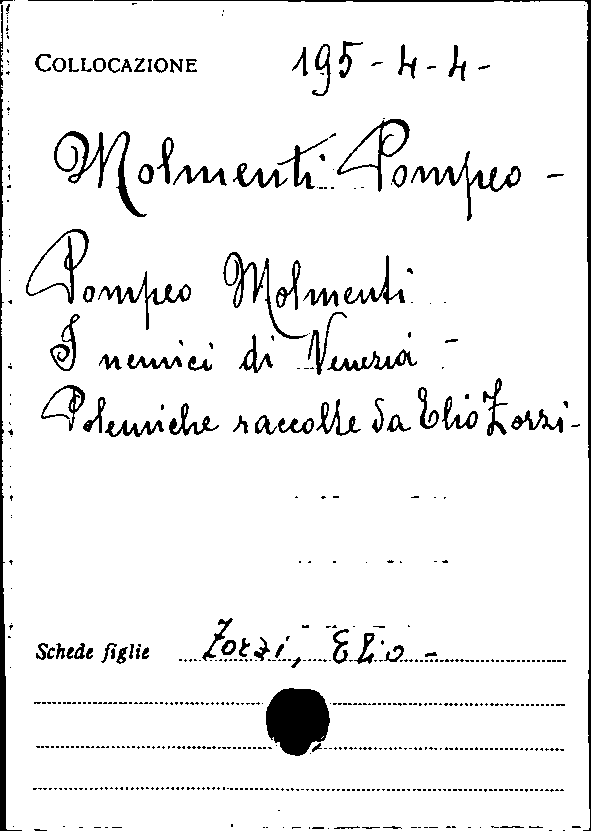 COLLOCAZIONE 195-4-4-
Molmenti Pompeo -
Pompeo Molmenti
I nemici di Venezia -
Polemiche raccolte da Elio Zorzi-
Schede figlie Zorzi, Elio -